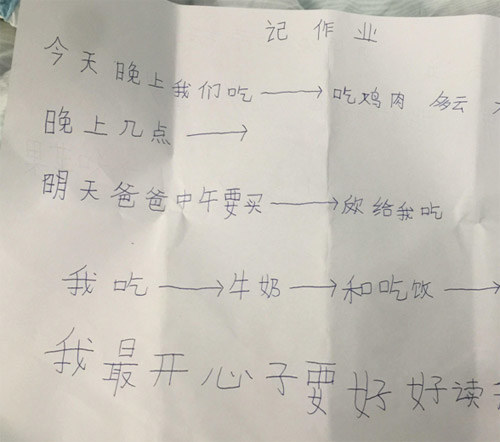 记作业
今天晚上我们吃→吃鸡肉 多云
晚上几点→
明天爸爸中午要买→ 给我吃
我吃→牛奶→和吃饭→
我最开心子要好好读